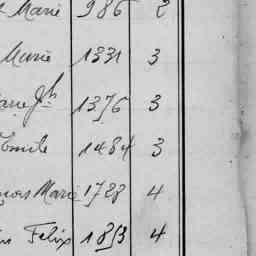 Marie 986 2
Marie 1331 3
Jh 1376 3
Emile 1484 3
Marie 1728 4
Felix 1853 4